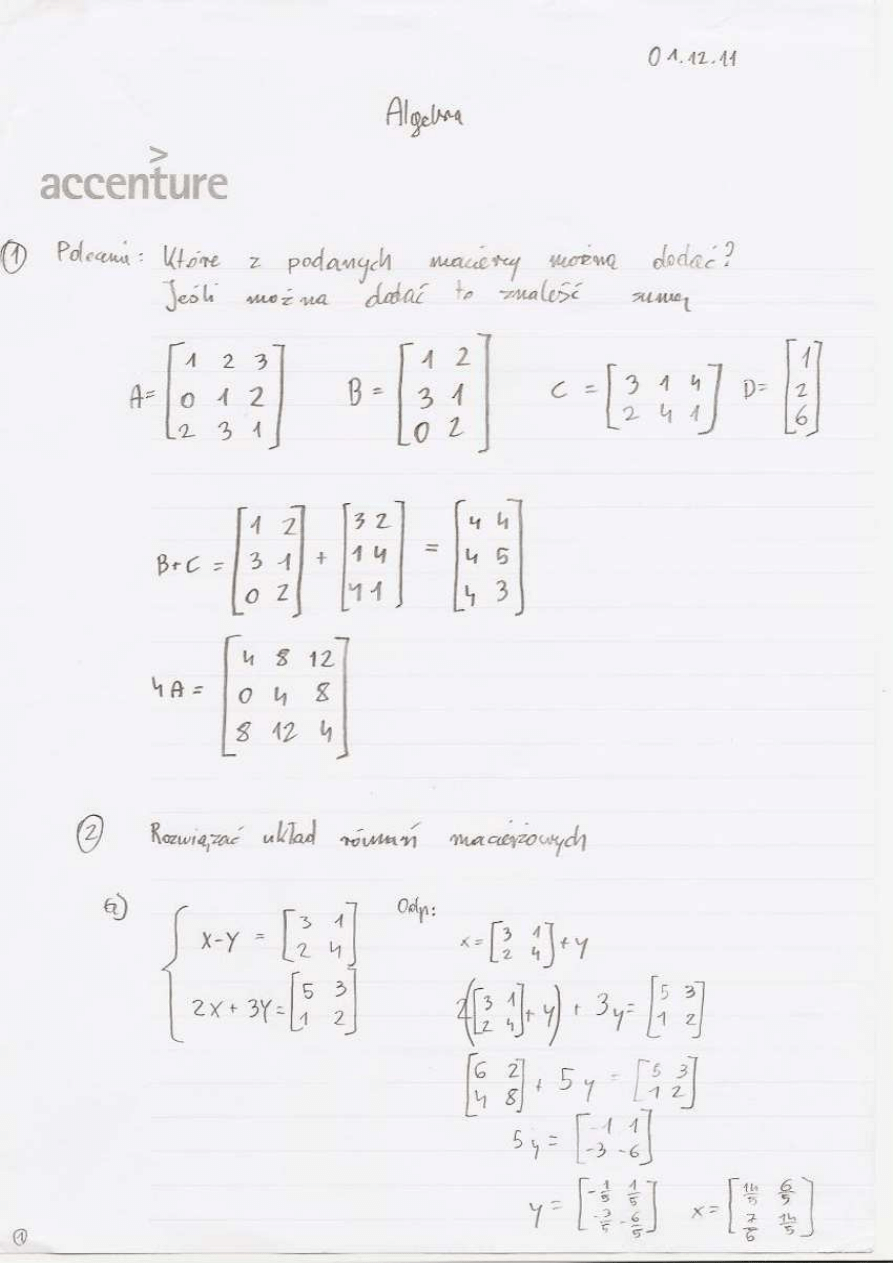 01.12.11
Algebra
accenture
① Polecenie: Które z podanych macierzy można dodać?
Jeśli można dodać to znaleść sumę
A= [1 2 3; 0 1 2; 2 3 1] B = [1 2; 3 1; 0 2] C = [3 1 4; 2 4 1] D= [1; 2; 6]
B+C = [1 2; 3 1; 0 2] + [3 2; 1 4; 4 1] = [4 4; 4 5; 4 3]
4A = [4 8 12; 0 4 8; 8 12 4]
② Rozwiązać układ równań macierzowych
a) { X-Y = [3 1; 2 4] Odp: x= [3 1; 2 4] + y
2X + 3Y = [5 3; 1 2] 2([3 1; 2 4] + y) + 3y = [5 3; 1 2]
[6 2; 4 8] + 5y = [5 3; 1 2]
5y = [-1 1; -3 -6]
y = [-1/5 1/5; -3/5 -6/5] x = [14/5 6/5; 7/6 14/5]
①